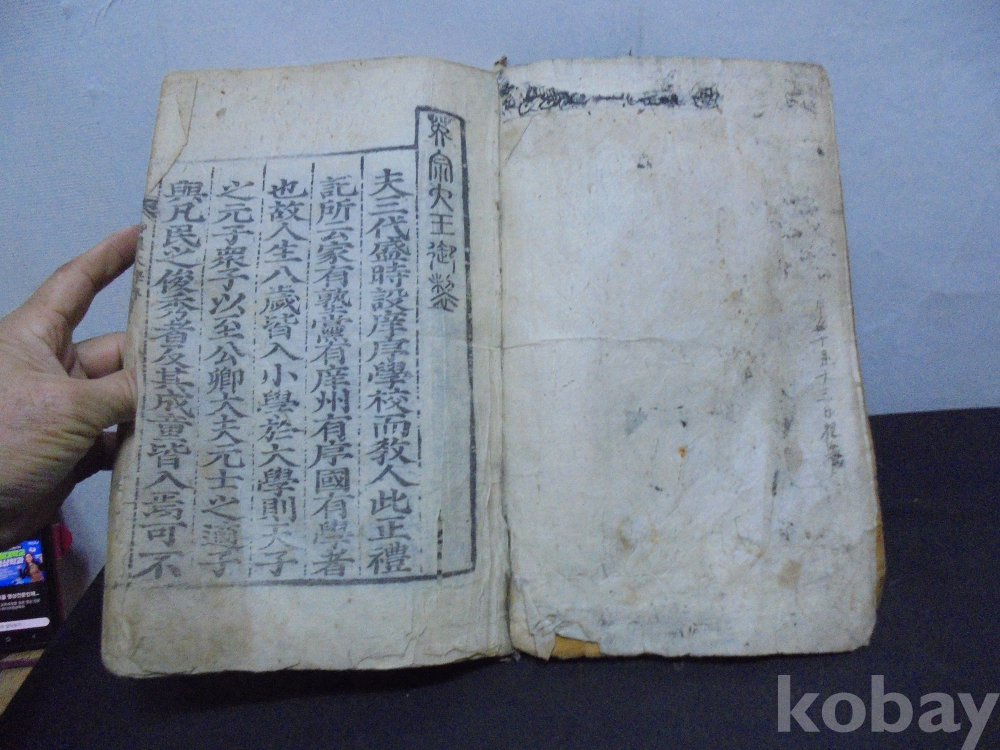 英宗大王御製
夫三代盛時設庠序學校而教人此正禮
記所云家有塾黨有庠州有序國有學者
也故人生八歲皆入小學於大學則天子
之元子衆子以至公卿大夫元士之適子
與凡民之俊秀者及其成童皆入焉可不
kobay